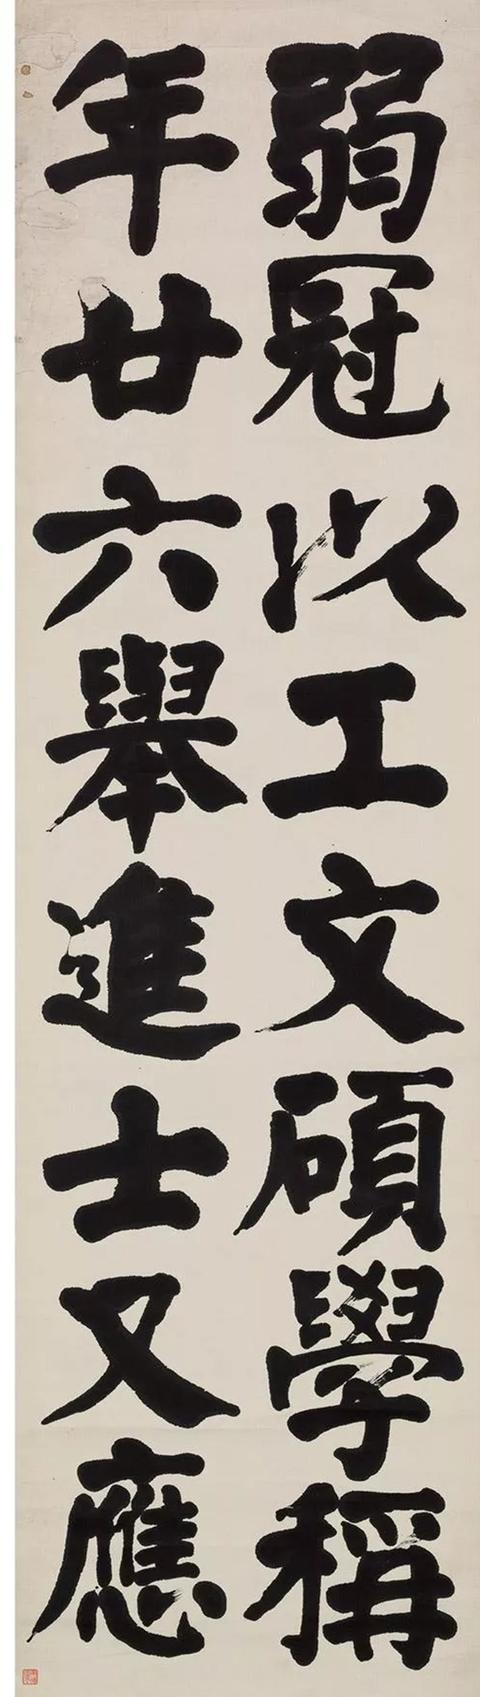 弱冠以工文碩學稱
年廿六舉進士又應